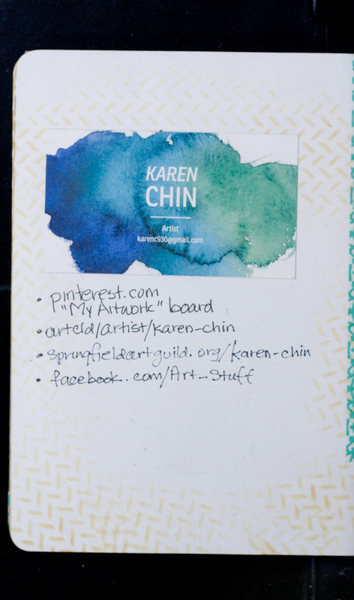 KAREN
CHIN
Artist
karenc930@gmail.com
• pinterest.com
"My Artwork" board
• artcld/artist/karen-chin
• springfieldartguild.org/karen-chin
• facebook.com/Art-Stuff